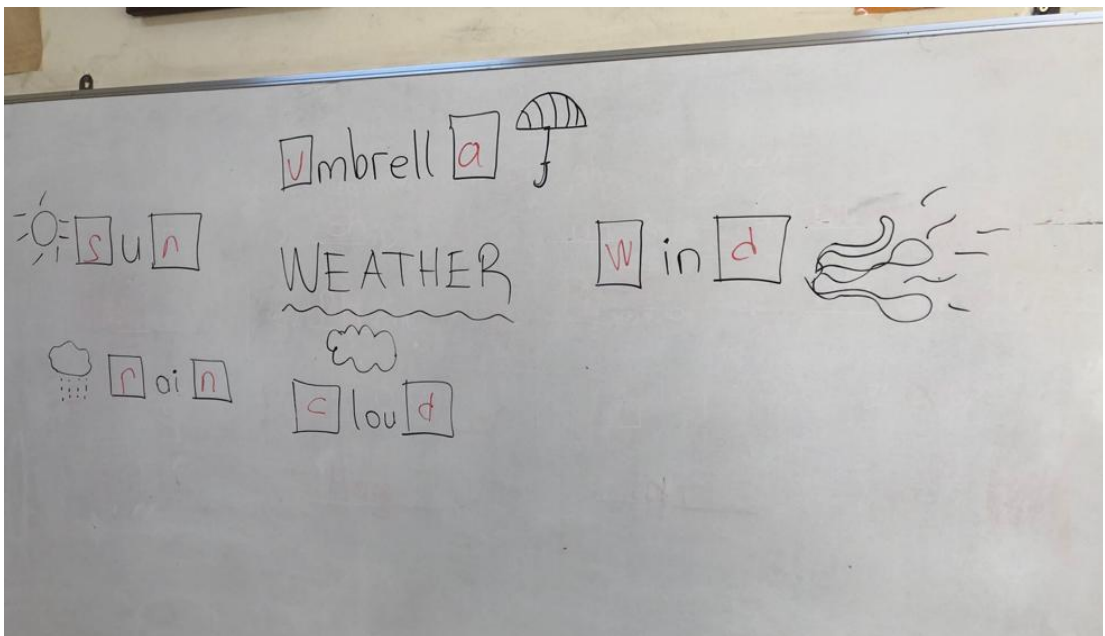 umbrella
sun
WEATHER
wind
rain
cloud